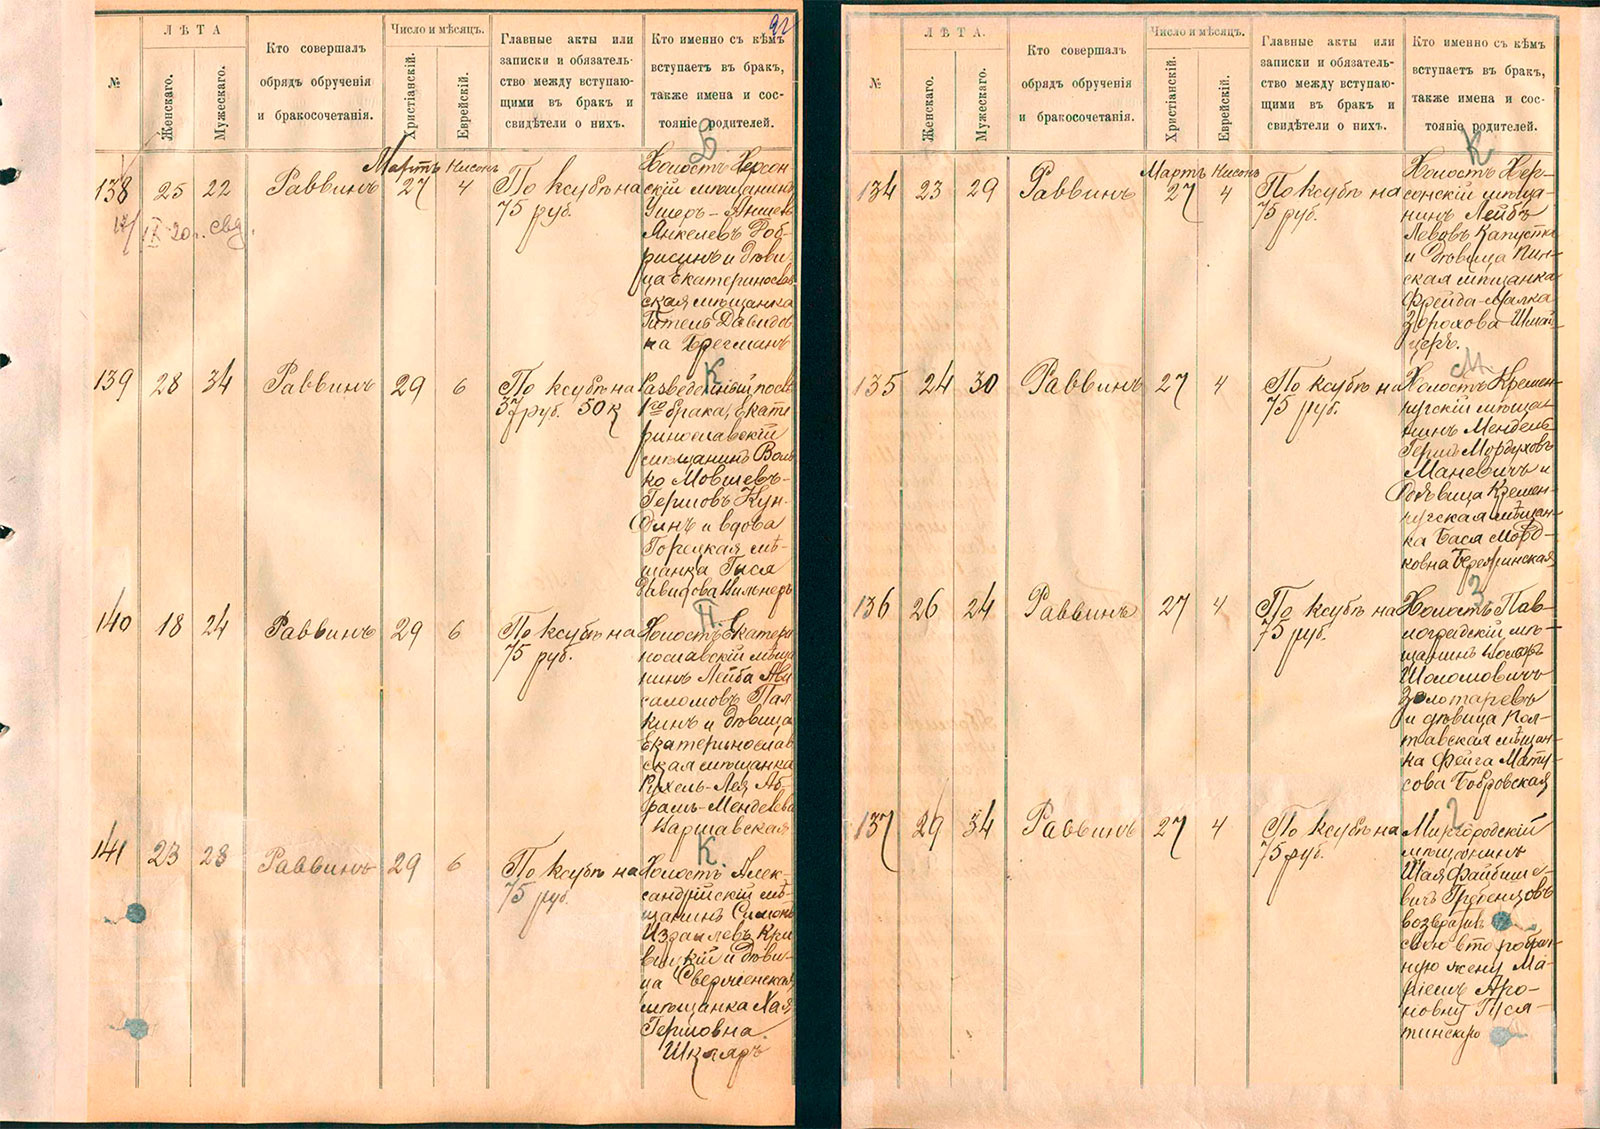 22
№
ЛѢТА
Женскаго.
Мужескаго.
Кто совершалъ
обрядъ обрученія
и бракосочетанія.
Число и мѣсяцъ.
Христіанскій.
Еврейскій.
Главные акты или
записки и обязатель-
ство между вступаю-
щими въ бракъ и
свидѣтели о нихъ.
Кто именно съ кѣмъ
вступаетъ въ бракъ,
также имена и сос-
тояніе родителей.
Мартъ Нисонъ
138 25 22 Раввинъ 27 4
По ксубѣ на
75 руб.
Холостъ Херсон
скій мѣщанинъ
Ушеръ-Аншель
Янкелевъ Боб-
рисинъ и дѣви-
ца Екатериносла
вская мѣщанка
Гитель Давидов
на Брегманъ
139 28 34 Раввинъ 29 6
По ксубѣ на
37 руб. 50 к
Разведенный послѣ
1го брака, Екате
ринославскій
мѣщанинъ Воль
ко Мовшевъ-
Гершовъ Кун-
динъ и вдова
Горецкая мѣ-
щанка Гыся
Давидова Вильнеръ
К
140 18 24 Раввинъ 29 6
По ксубѣ на
75 руб.
П.
Холостъ Екатери
нославскій мѣща
нинъ Лейба Ави
саломовъ Пал
кинъ и дѣвица
Екатеринослав
ская мѣщанка
Рухель-Лея Аб-
рамъ-Менделева
Варшавская
141 23 28 Раввинъ 29 6
По ксубѣ на
75 руб.
К.
Холостъ Алек-
сандрійскій мѣ-
щанинъ Симонъ
Израилевъ Кри
вицкій и дѣви-
ца
мѣщанка Хая
Гершовна
Шкляръ
№
ЛѢТА.
Женскаго.
Мужескаго.
Кто совершалъ
обрядъ обрученія
и бракосочетанія.
Число и мѣсяцъ.
Христіанскій.
Еврейскій.
Главные акты или
записки и обязатель-
ство между вступаю-
щими въ бракъ и
свидѣтели о нихъ.
Кто именно съ кѣмъ
вступаетъ въ бракъ,
также имена и сос-
тояніе родителей.
Мартъ Нисонъ
134 23 29 Раввинъ 27 4
По ксубѣ на
75 руб.
К
Холостъ Хер-
сонскій мѣща-
нинъ Лейбъ
Левовъ Капустка
и дѣвица Пин-
ская мѣщанка
Фрейда-Малка
Зорохова Шмай
церъ.
135 24 30 Раввинъ 27 4
По ксубѣ на
75 руб.
М.
Холостъ Кремен-
чугскій мѣщан-
нинъ Мендель-
Гершъ Мордуховъ
Маневичъ и
дѣвица Кремен-
чугская мѣщан-
ка Бася Морд-
ковна Березинская
136 26 24 Раввинъ 27 4
По ксубѣ на
75 руб.
З.
Холостъ Пав-
лоградскій мѣ-
щанинъ Вольфъ
Шоломовичъ
Золотаревъ
и дѣвица Пол-
тавская мѣщан-
ка Фейга Мату-
сова Бобровская
137 29 34 Раввинъ 27 4
По ксубѣ на
75 руб.
Миргородскій
мѣщанинъ
Шая Файбише-
вичъ Гребенцовъ
возвратилъ
свою второбрач-
ную жену Ма-
ріемъ Аро-
новну Гуся-
тинскую